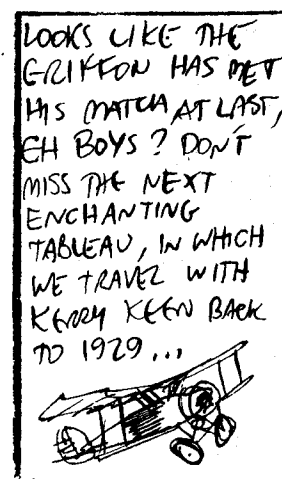 LOOKS LIKE THE
GRIFFON HAS MET
HIS MATCH AT LAST,
EH BOYS? DON'T
MISS THE NEXT
ENCHANTING
TABLEAU, IN WHICH
WE TRAVEL WITH
KERRY KEEN BACK
TO 1929...